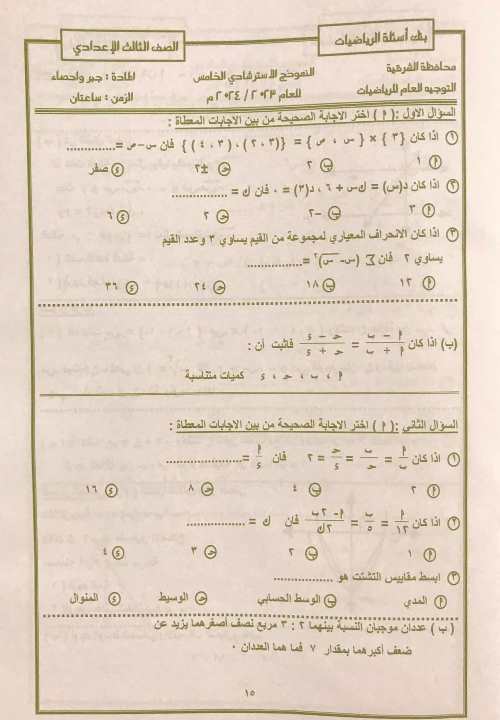 بنك أسئلة الرياضيات
الصف الثالث الإعدادي
محافظة الشرقية
النموذج الأسترشادي الخامس
المادة : جبر وأحصاء
التوجيه العام للرياضيات
للعام ٢٠٢٣ / ٢٠٢٤ م
الزمن : ساعتان
السؤال الاول :( أ ) اختر الاجابة الصحيحة من بين الاجابات المعطاة :
١ اذا كان { ٣ } × { س ، ص } = { (٣ ، ٢) ، (٣ ، ٤) } فان س - ص =..............
أ ١ ب ٢ حـ ±٢ ء صفر
٢ اذا كان د(س) = ك س + ٦ ، د(٣) = ٠ فان ك = ................
أ ٣ ب -٢ حـ ٢ ء ٦
٣ اذا كان الانحراف المعياري لمجموعة من القيم يساوي ٣ وعدد القيم
يساوي ٢ فان ∑ (س - س̄)٢ =................
أ ١٢ ب ١٨ حـ ٢٤ ء ٣٦
(ب) اذا كان (أ - ب)/(أ + ب) = (حـ - ء)/(حـ + ء) فاثبت أن :
أ ، ب ، حـ ، ء كميات متناسبة
السؤال الثاني :( أ ) اختر الاجابة الصحيحة من بين الاجابات المعطاة :
١ اذا كان أ/ب = ب/حـ = حـ/ء = ٢ فان أ/ء =....................
أ ٢ ب ٤ حـ ٨ ء ١٦
٢ اذا كان أ/١٢ = ب/٥ = (أ - ٢ب)/٢ك فان ك = ................
أ ١ ب ٢ حـ ٣ ء ٤
٣ ابسط مقاييس التشتت هو ................
أ المدي ب الوسط الحسابي حـ الوسيط ء المنوال
( ب ) عددان موجبان النسبة بينهما ٢ : ٣ مربع نصف أصغرهما يزيد عن
ضعف أكبرهما بمقدار ٧ فما هما العددان ٠
١٥